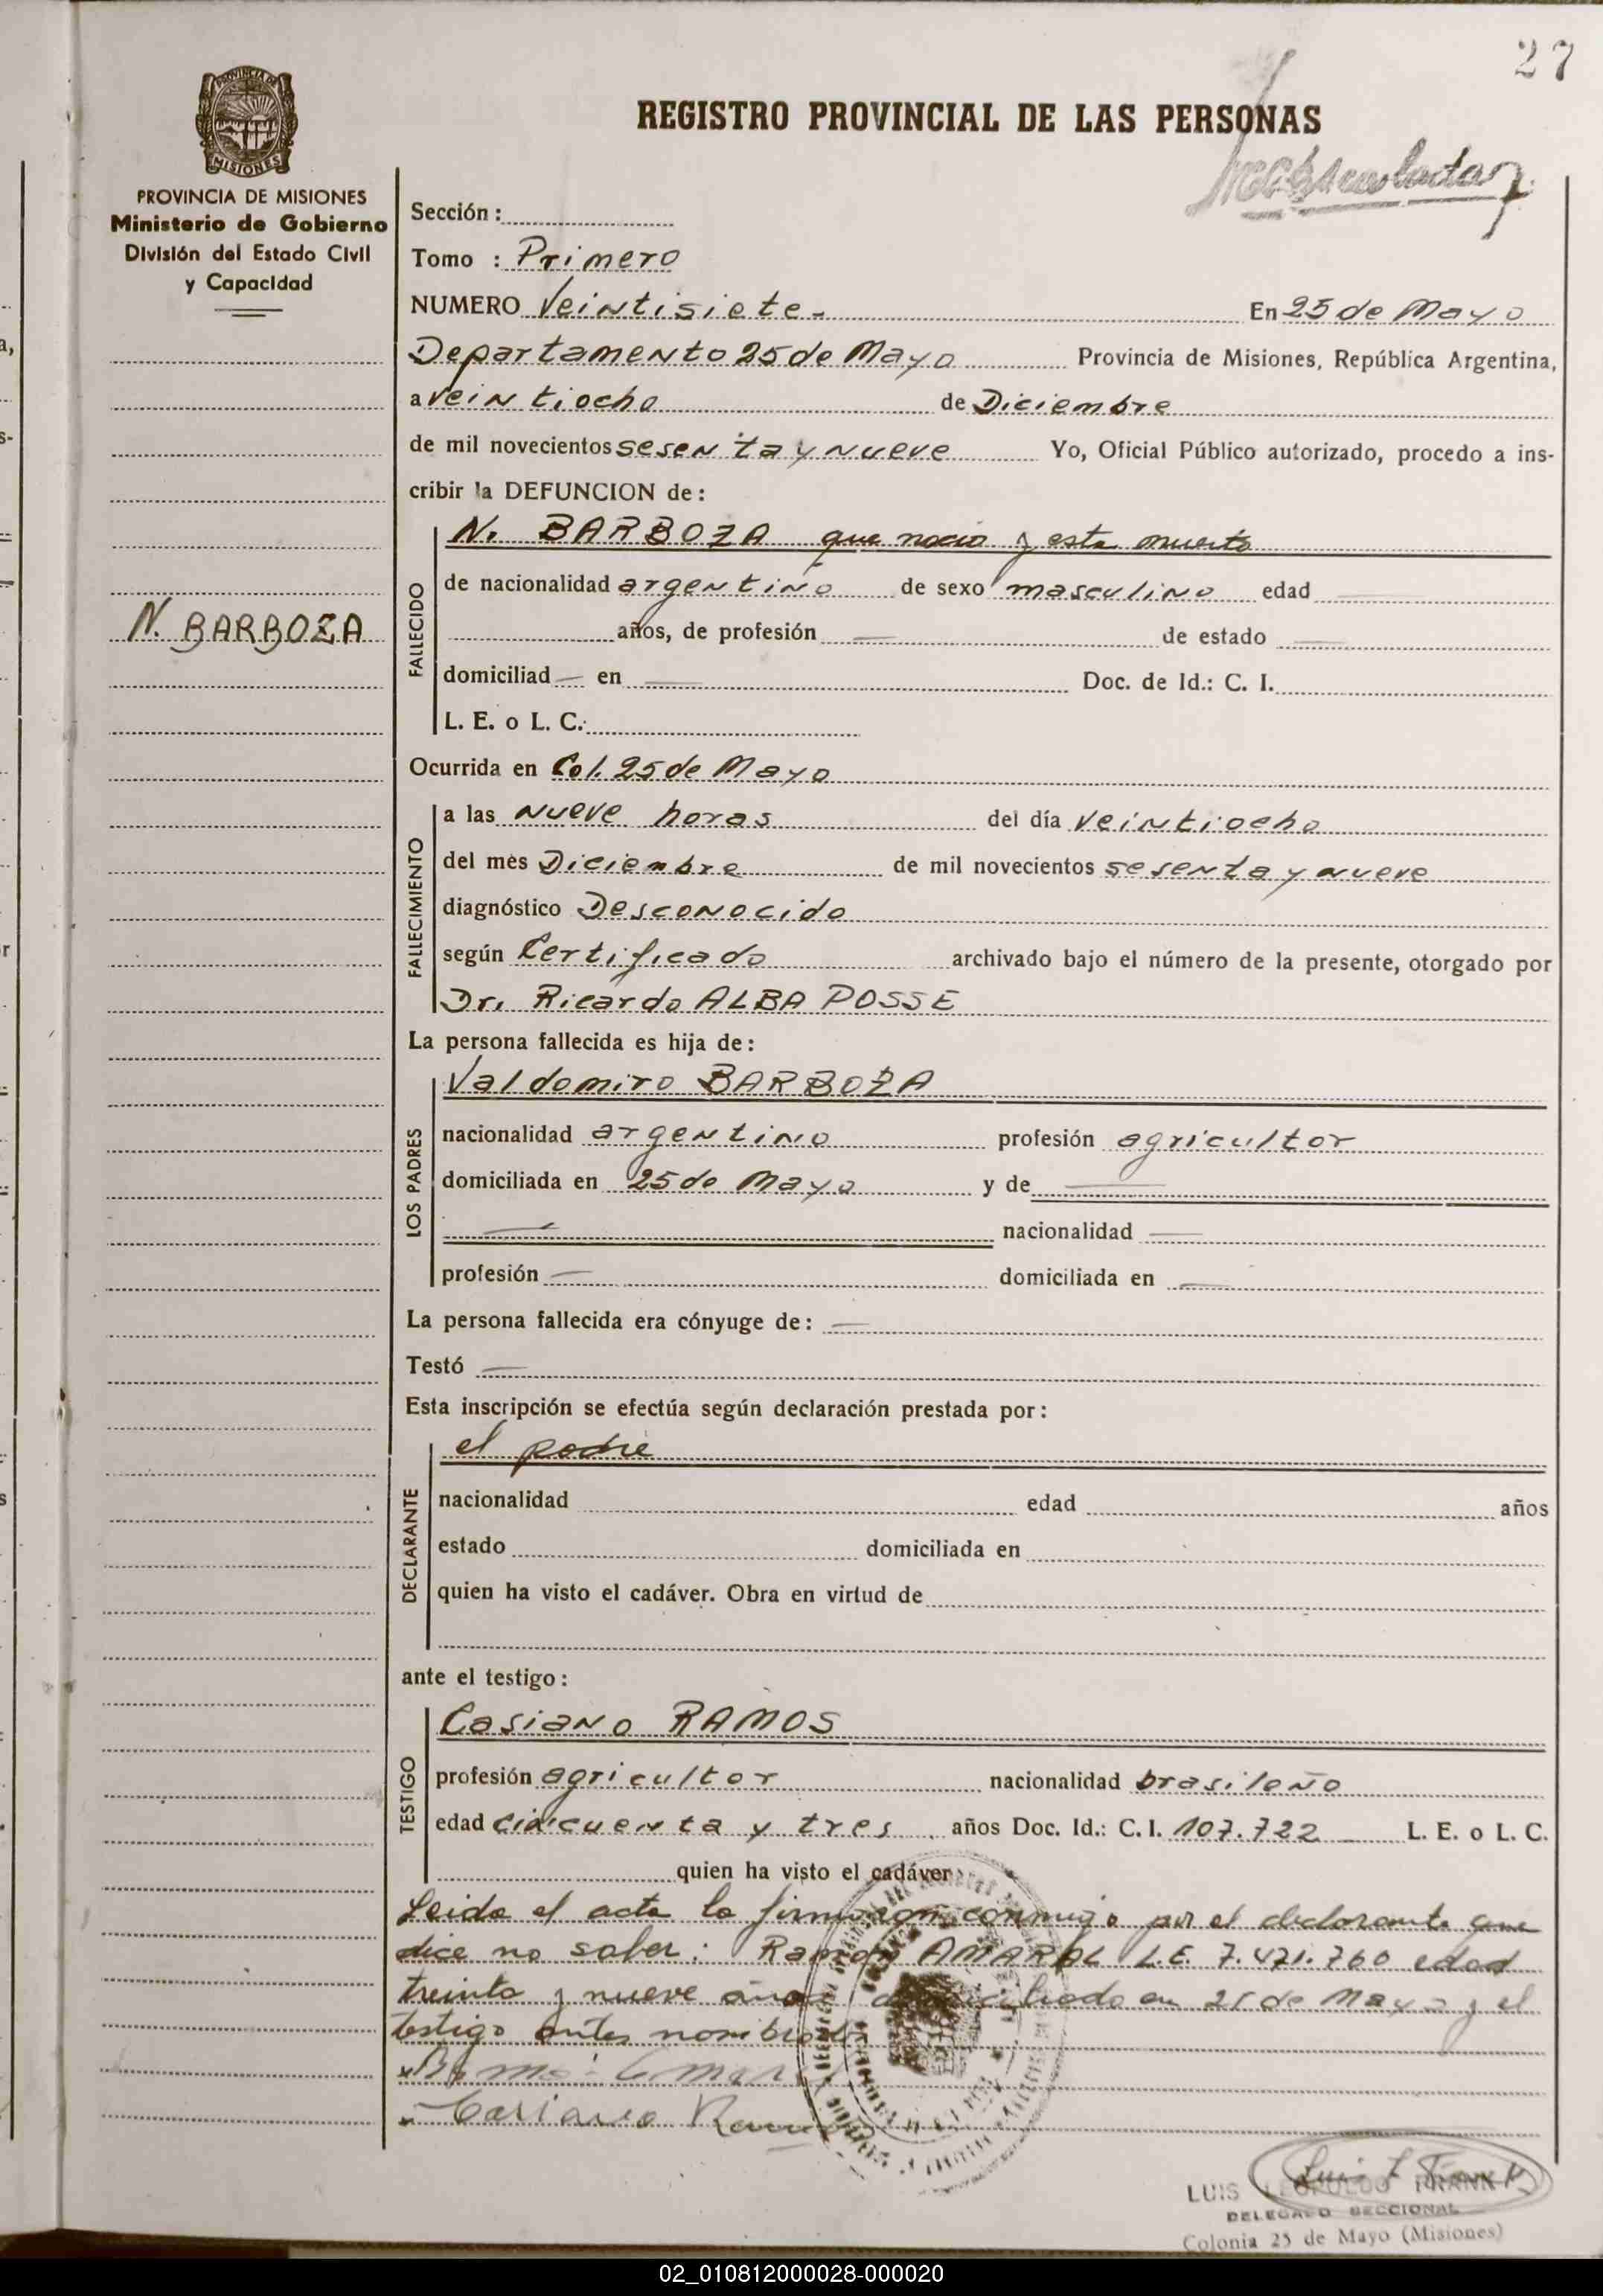 27
REGISTRO PROVINCIAL DE LAS PERSONAS
PROVINCIA DE MISIONES
MISIONES
PROVINCIA DE MISIONES
Ministerio de Gobierno
División del Estado Civil
y Capacidad
N. BARBOZA
Sección:
Tomo : Primero
NUMERO Veintisiete.- En 25 de Mayo
Departamento 25 de Mayo Provincia de Misiones, República Argentina,
a veintiocho de Diciembre
de mil novecientos sesenta y nueve Yo, Oficial Público autorizado, procedo a ins-
cribir la DEFUNCION de:
FALLECIDO
N. BARBOZA que nacio y esta muerto
de nacionalidad argentino de sexo masculino edad —
años, de profesión — de estado —
domiciliad — en — Doc. de Id.: C. I.
L. E. o L. C.:
Ocurrida en Col. 25 de Mayo
FALLECIMIENTO
a las nueve horas del día veintiocho
del mes Diciembre de mil novecientos sesenta y nueve
diagnóstico Desconocido
según Certificado archivado bajo el número de la presente, otorgado por
Dr. Ricardo ALBA POSSE
La persona fallecida es hija de:
LOS PADRES
Valdomiro BARBOZA
nacionalidad argentino profesión agricultor
domiciliada en 25 de Mayo y de —
— nacionalidad —
profesión — domiciliada en —
La persona fallecida era cónyuge de: —
Testó —
Esta inscripción se efectúa según declaración prestada por:
DECLARANTE
el padre
nacionalidad edad años
estado domiciliada en
quien ha visto el cadáver. Obra en virtud de
ante el testigo:
TESTIGO
Casiano RAMOS
profesión agricultor nacionalidad brasileño
edad cincuenta y tres años Doc. Id.: C. I. 107.722 — L. E. o L. C.
quien ha visto el cadáver
Leida el acta la firmaron conmigo por el declarante que
dice no saber: Ramón AMARAL L.E. 7.471.760 edad
treinta y nueve años domiciliado en 25 de Mayo y el
testigo antes nombrado
Casiano Ramos
LUIS LEOPOLDO FRANK
DELEGADO SECCIONAL
Colonia 25 de Mayo (Misiones)
02_010812000028-000020